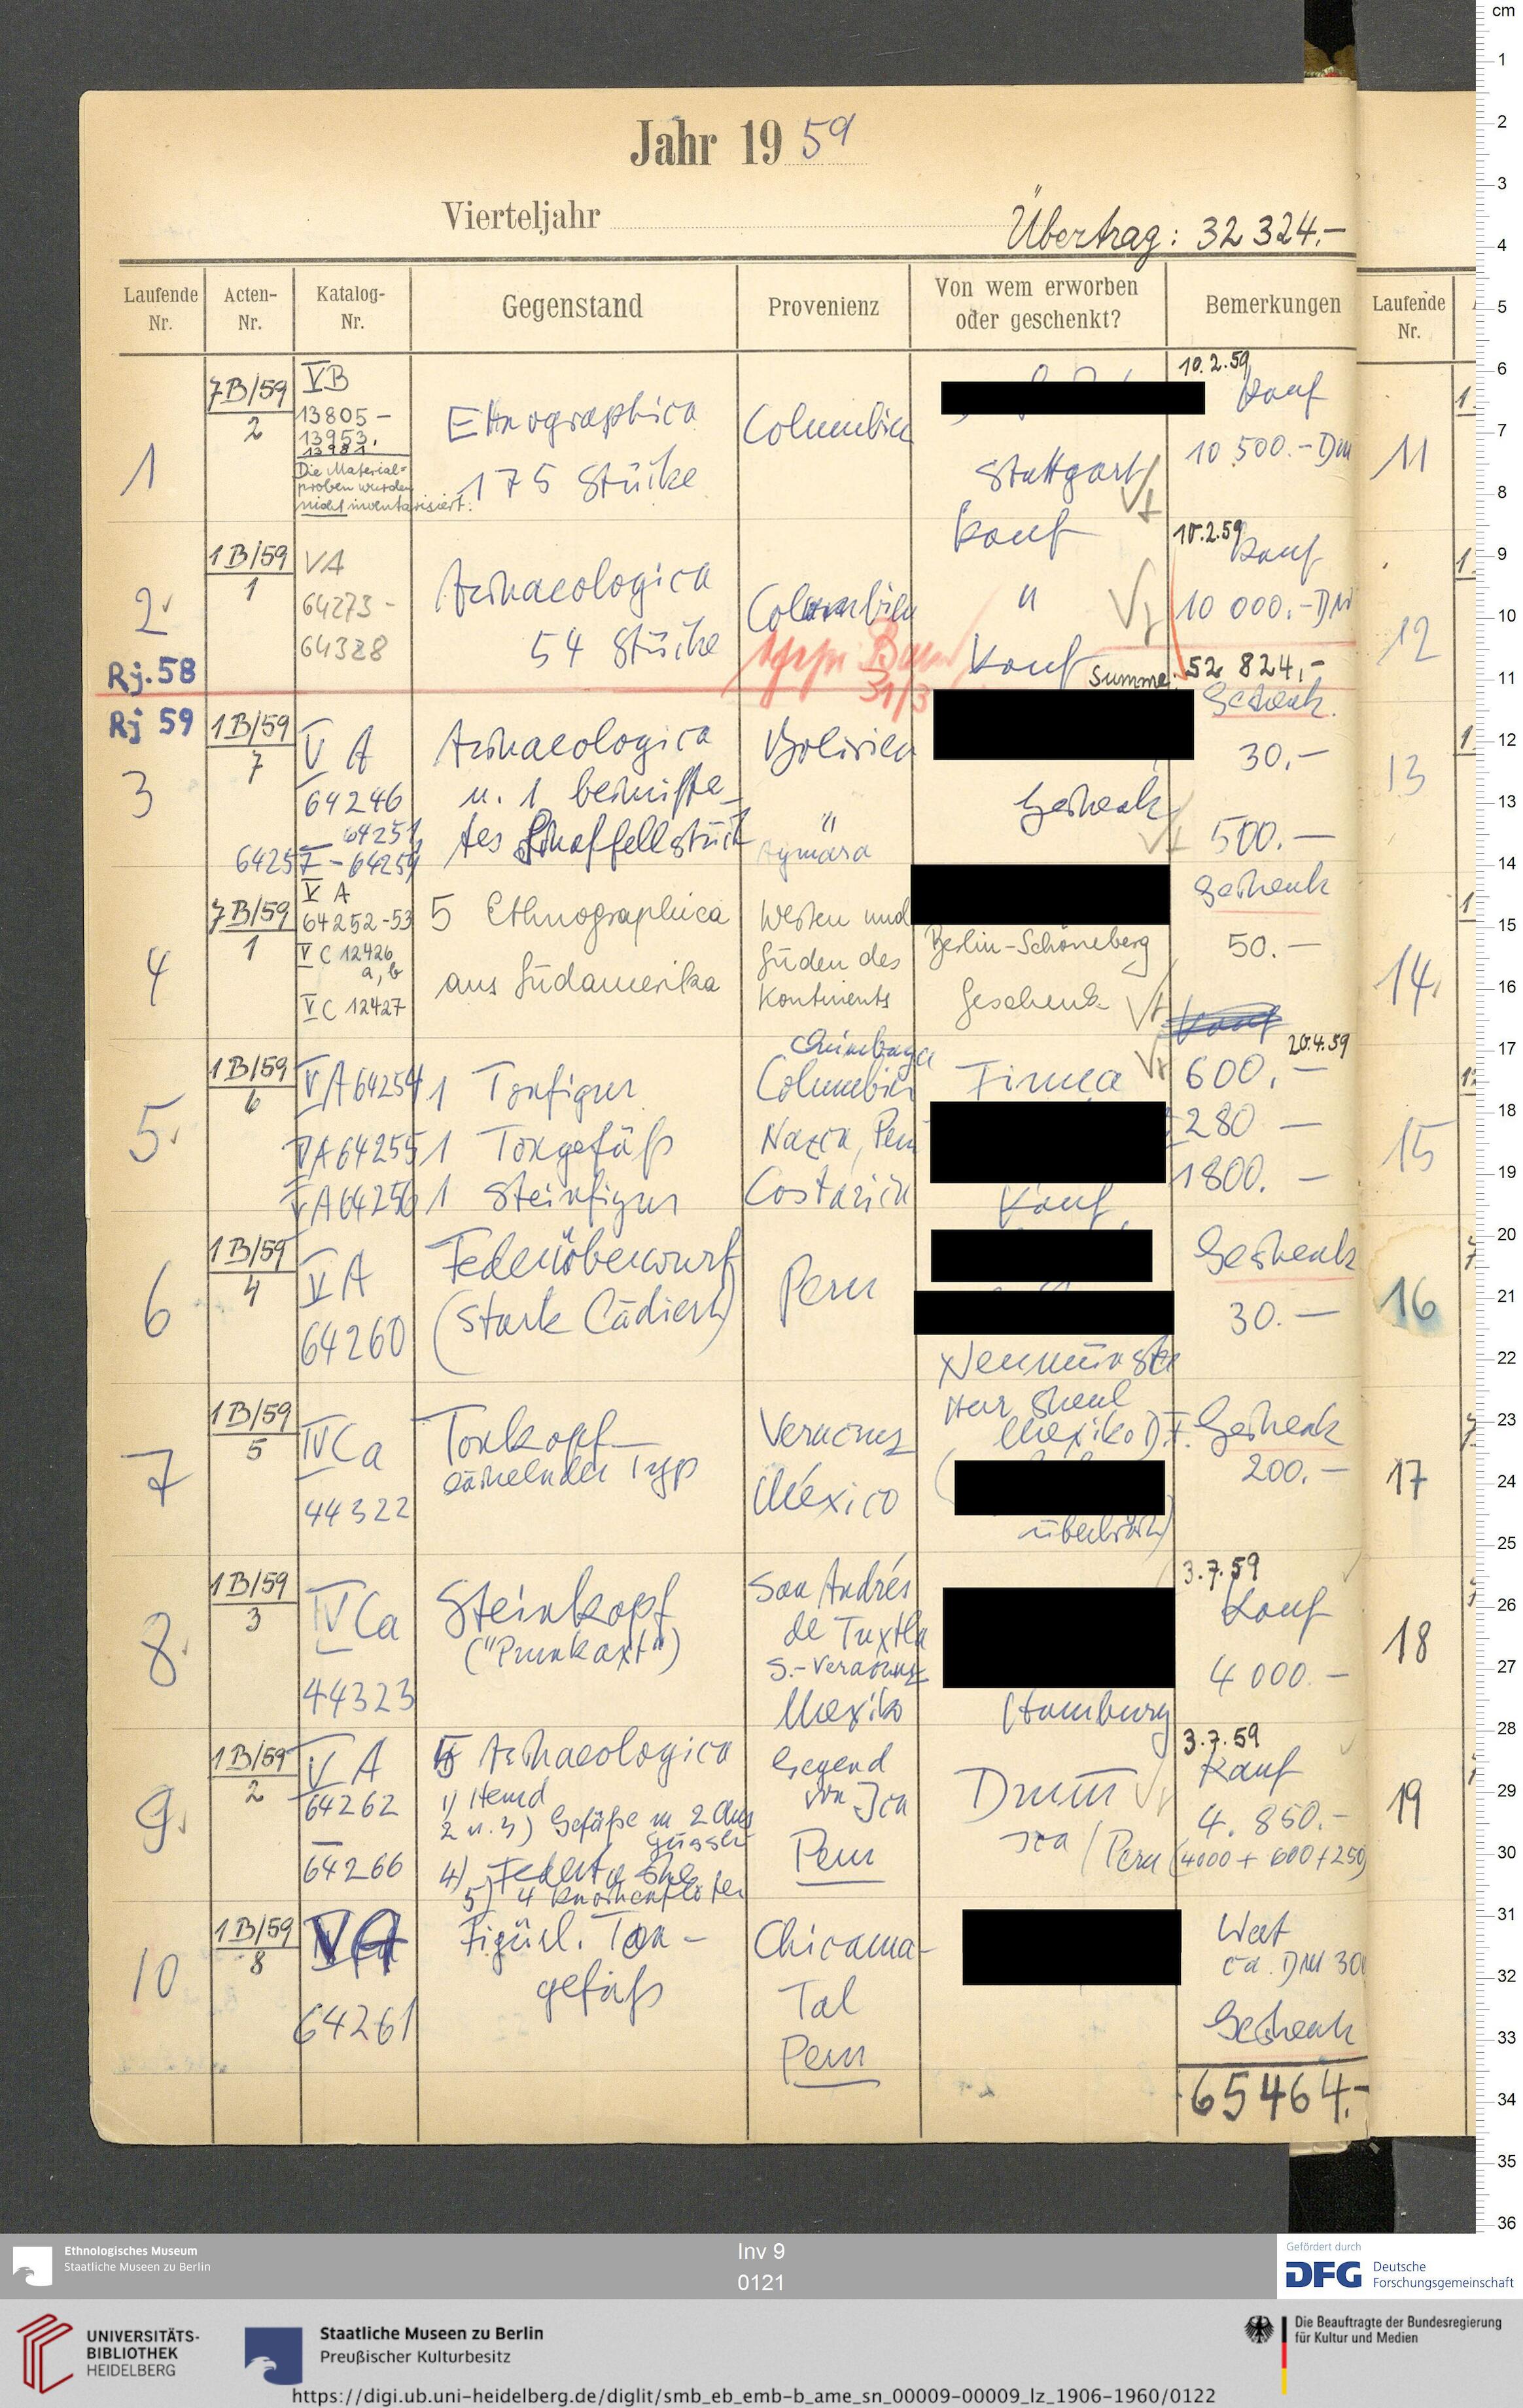 Jahr 19 59
Vierteljahr
Übertrag: 32 324.-
Laufende Nr.
Acten-Nr.
Katalog-Nr.
Gegenstand
Provenienz
Von wem erworben oder geschenkt?
Bemerkungen
Laufende Nr.
1
7B/59
2
VB
13805-
13953,
13981
Die Material-
proben wurden
nicht inventarisiert.
Ethnographica
175 Stücke
Columbien
Stuttgart
Kauf
10.2.59
Kauf
10 500.- DM
11
2
Rj. 58
1B/59
1
VA
64273 -
64328
Archaeologica
54 Stücke
Columbien
31/3
"
Kauf
10.2.59
Kauf
10 000.- DM
Summe: 52 824,-
12
Rj 59
3
1B/59
7
V A
64246
- 64251
64257 - 64259
Archaeologica
u. 1 beschrifte-
tes Schaffellstück
Bolivien
"
Aymara
Geschenk
Geschenk
30,-
500.-
13
4
7B/59
1
V A
64252-53
V C 12426
a, b
V C 12427
5 Ethnographica
aus Südamerika
Westen und
Süden des
Kontinents
Berlin-Schöneberg
Geschenk
Geschenk
50.-
Kauf
14
5
1B/59
6
V A 64254
V A 64255
V A 64256
1 Tonfigur
1 Tongefäß
1 Steinfigur
Columbien
Nazca, Peru
Costarica
Firma
Kauf
20.4.59
600.-
280 -
1800. -
15
6
1B/59
4
V A
64260
Federüberwurf
(stark lädiert)
Peru
Neumünster
Geschenk
30.-
16
7
1B/59
5
IV Ca
44322
Tonkopf
lächelnder Typ
Veracruz
México
Herr
Mexiko D.F.
überbracht)
Geschenk
200.-
17
8
1B/59
3
IV Ca
44323
Steinkopf
("Prunkaxt")
San Andrés
de Tuxtla
S.-Veracruz
Mexiko
Hamburg
3.7.59
Kauf
4 000.-
18
9
1B/59
2
V A
64262
-
64266
5 Archaeologica
1) Hemd
2 u. 3) Gefäße m 2 Aus
güssen
4) Federtasche
5) 4 Knochenflöten
Gegend
von Ica
Peru
Ica / Peru
3.7.59
Kauf
4.850.-
(4000 + 600 + 250)
19
10
1B/59
8
VA
64261
Figürl. Ton-
gefäß
Chicama-
Tal
Peru
Wert
ca. DM 300
Geschenk
65464.-
cm
1
2
3
4
5
6
7
8
9
10
11
12
13
14
15
16
17
18
19
20
21
22
23
24
25
26
27
28
29
30
31
32
33
34
35
36
Ethnologisches Museum
Staatliche Museen zu Berlin
Inv 9
0121
Gefördert durch
DFG Deutsche
Forschungsgemeinschaft
UNIVERSITÄTS-
BIBLIOTHEK
HEIDELBERG
Staatliche Museen zu Berlin
Preußischer Kulturbesitz
Die Beauftragte der Bundesregierung
für Kultur und Medien
https://digi.ub.uni-heidelberg.de/diglit/smb_eb_emb-b_ame_sn_00009-00009_lz_1906-1960/0122